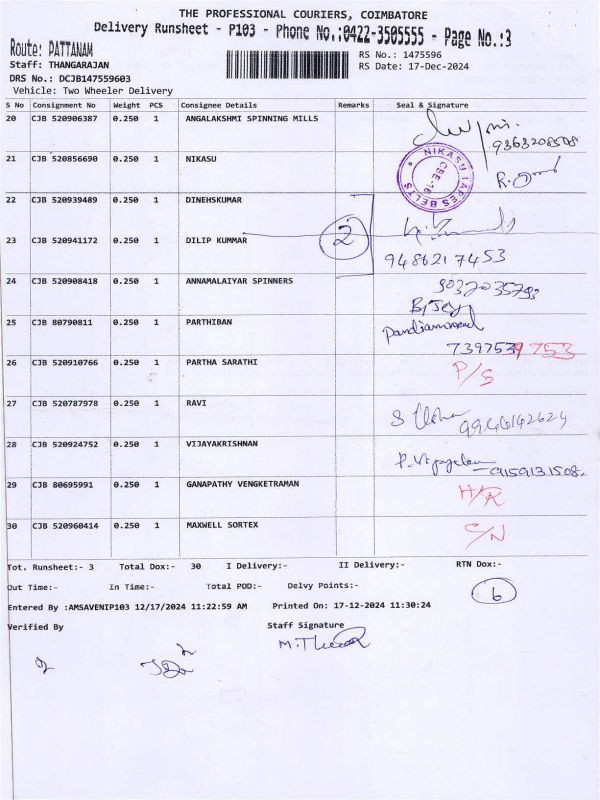 THE PROFESSIONAL COURIERS, COIMBATORE
Delivery Runsheet - P103 - Phone No.:0422-3505555 - Page No.:3
Route: PATTANAM
RS No.: 1475596
Staff: THANGARAJAN
RS Date: 17-Dec-2024
DRS No.: DCJB147559603
Vehicle: Two Wheeler Delivery
S No Consignment No Weight PCS Consignee Details Remarks Seal & Signature
20 CJB 520906387 0.250 1 ANGALAKSHMI SPINNING MILLS
9363208508
21 CJB 520856690 0.250 1 NIKASU
NIKASU TAPES BELTS CBE-16
22 CJB 520939489 0.250 1 DINEHSKUMAR
23 CJB 520941172 0.250 1 DILIP KUMMAR 2
9486217453
24 CJB 520908418 0.250 1 ANNAMALAIYAR SPINNERS
25 CJB 80790811 0.250 1 PARTHIBAN
26 CJB 520910766 0.250 1 PARTHA SARATHI P/S
27 CJB 520787978 0.250 1 RAVI
9946142624
28 CJB 520924752 0.250 1 VIJAYAKRISHNAN
9159131508
29 CJB 80695991 0.250 1 GANAPATHY VENGKETRAMAN
30 CJB 520960414 0.250 1 MAXWELL SORTEX
Tot. Runsheet:- 3 Total Dox:- 30 I Delivery:- II Delivery:- RTN Dox:-
Out Time:- In Time:- Total POD:- Delvy Points:- 6
Entered By :AMSAVENIP103 12/17/2024 11:22:59 AM Printed On: 17-12-2024 11:30:24
Verified By Staff Signature